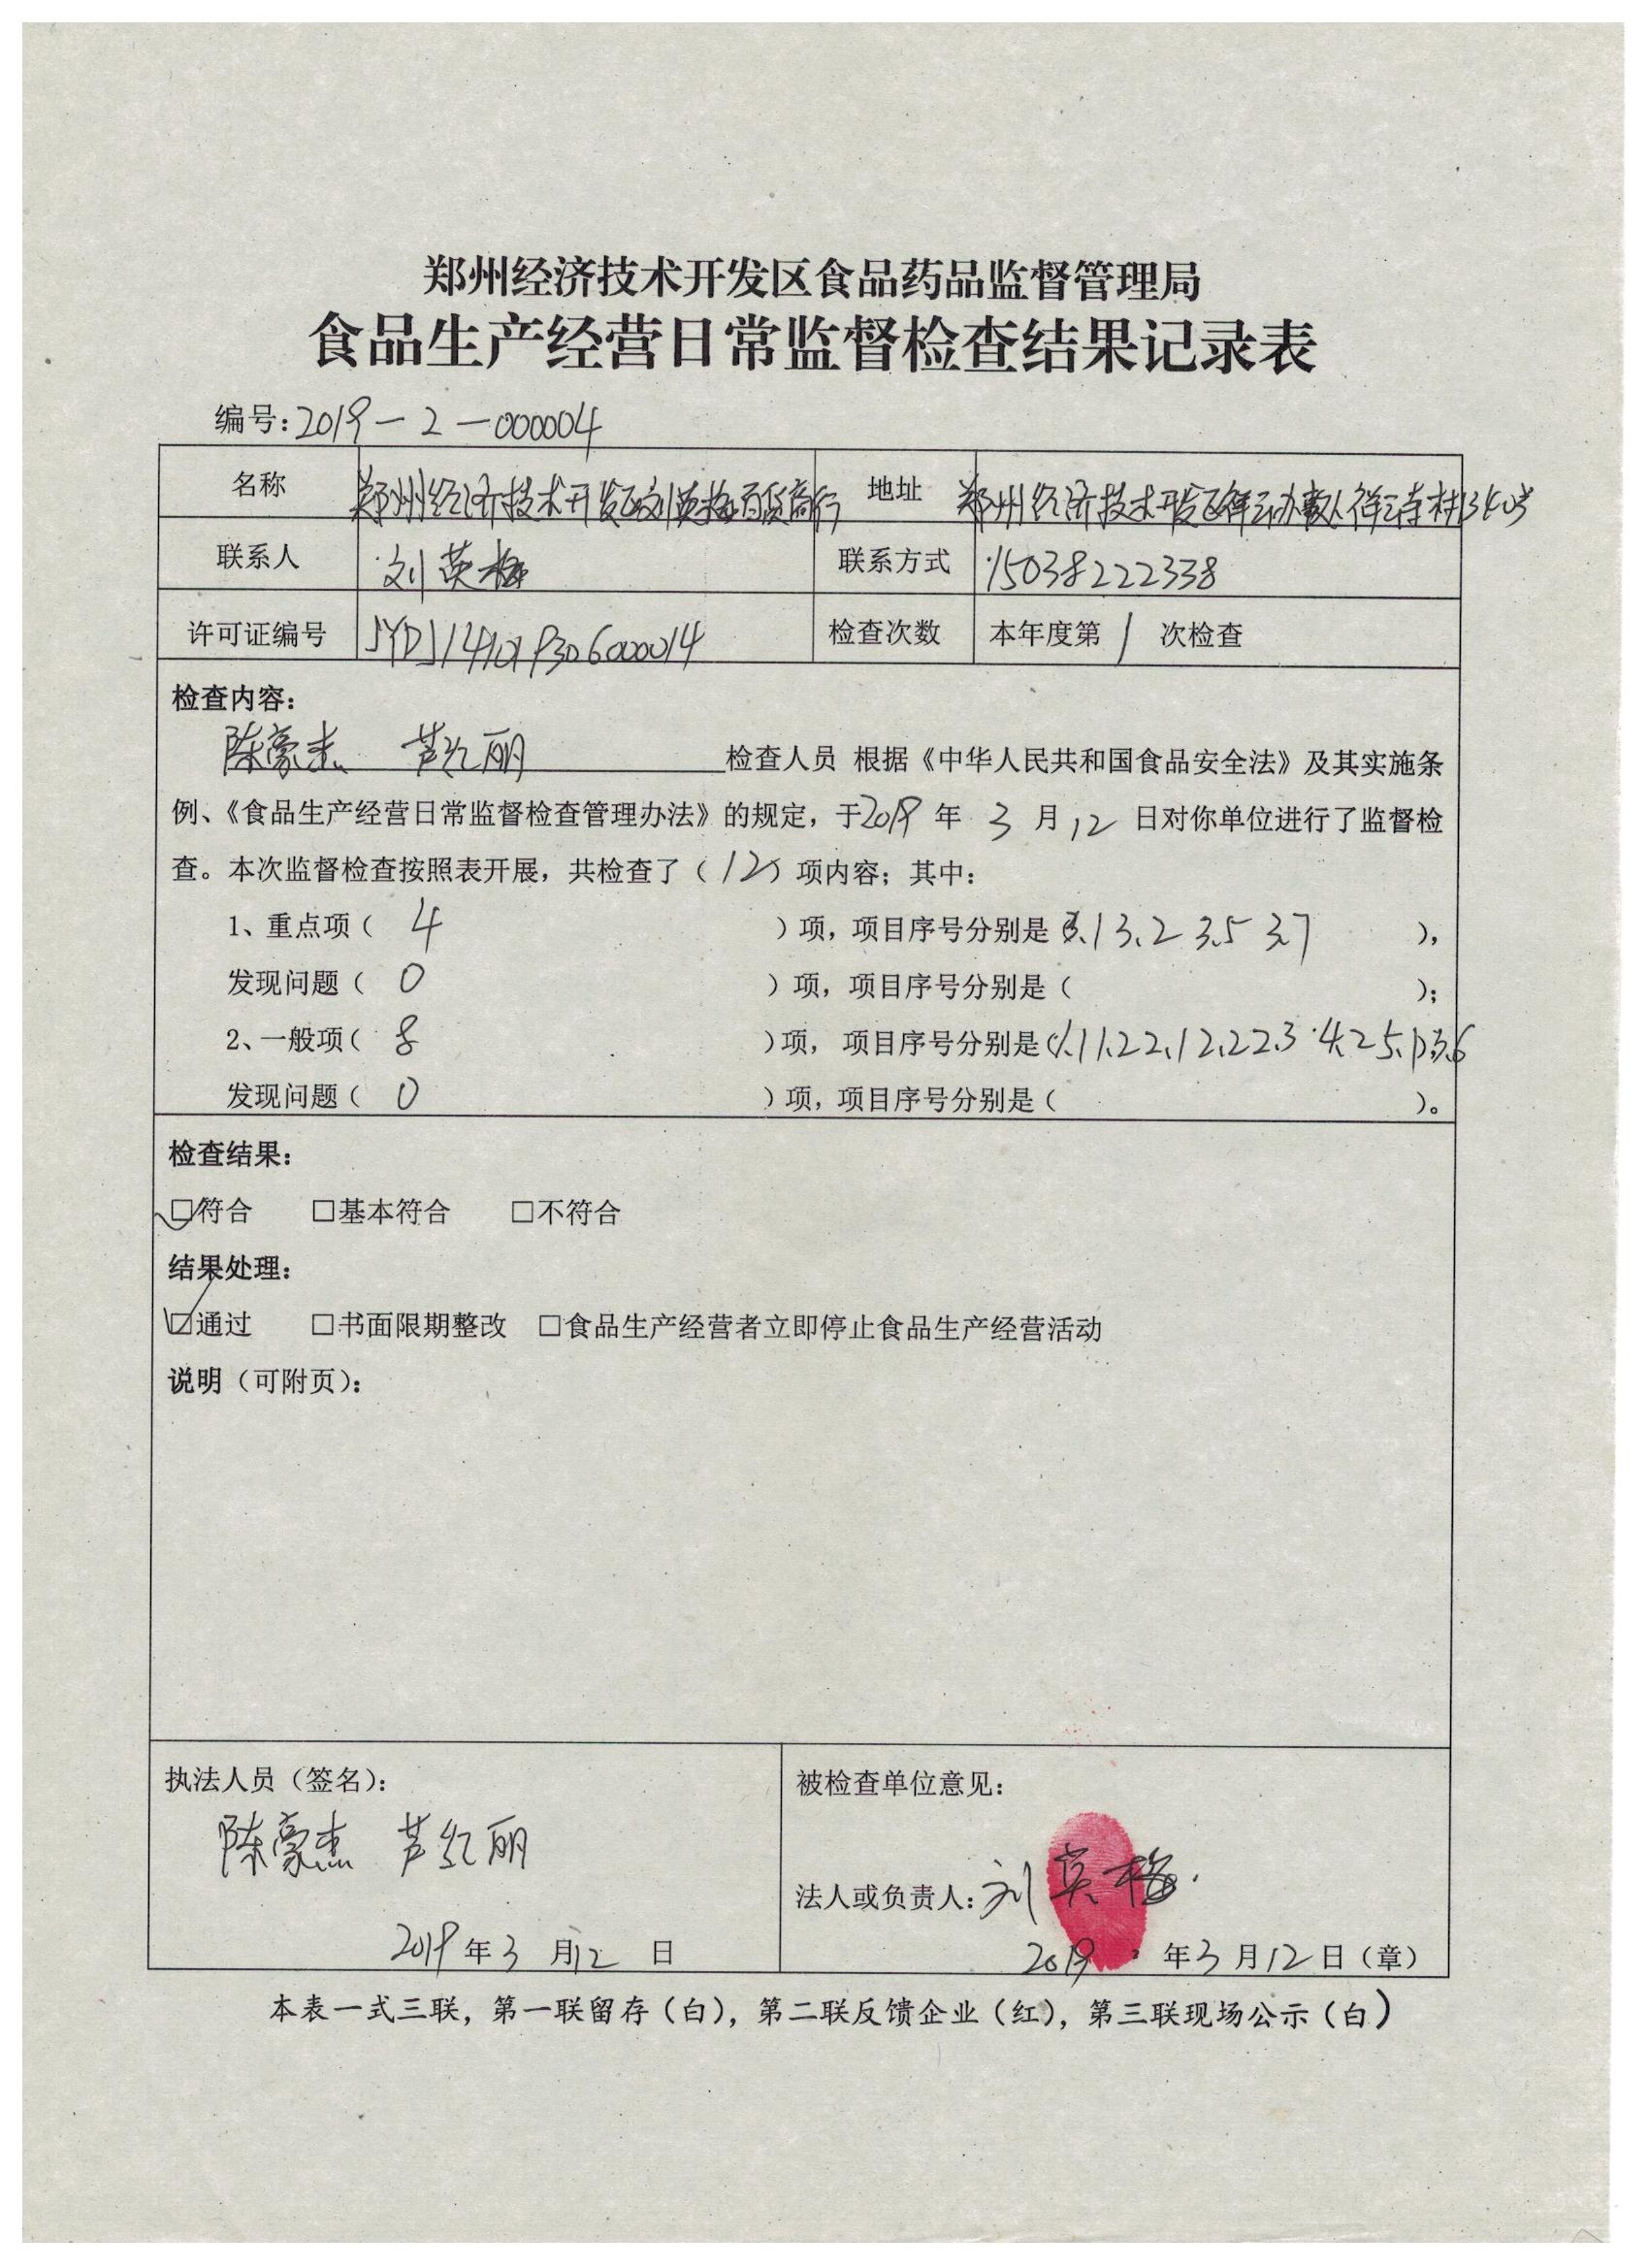 郑州经济技术开发区食品药品监督管理局
食品生产经营日常监督检查结果记录表
编号:2019-2-000004
名称 郑州经济技术开发区刘英梅百货商行 地址 郑州经济技术开发区祥云办事处祥云寺村
联系人 刘英梅 联系方式 15038222338
许可证编号 检查次数 本年度第1次检查
检查内容:
陈豪杰 芦红丽 检查人员 根据《中华人民共和国食品安全法》及其实施条
例、《食品生产经营日常监督检查管理办法》的规定,于2019年3月12日对你单位进行了监督检
查。本次监督检查按照表开展,共检查了(12)项内容;其中:
1、重点项(4)项,项目序号分别是 3.1 3.2 3.5 3.7 ),
发现问题(0)项,项目序号分别是( );
2、一般项(8)项,项目序号分别是(1.1 1.2 2.1 2.2 2.3 4.2 5.1 3.6
发现问题(0)项,项目序号分别是( )。
检查结果:
☑符合 □基本符合 □不符合
结果处理:
☑通过 □书面限期整改 □食品生产经营者立即停止食品生产经营活动
说明(可附页):
执法人员(签名): 被检查单位意见:
陈豪杰 芦红丽
法人或负责人:刘英梅
2019年3月12日 2019年3月12日(章)
本表一式三联,第一联留存(白),第二联反馈企业(红),第三联现场公示(白)